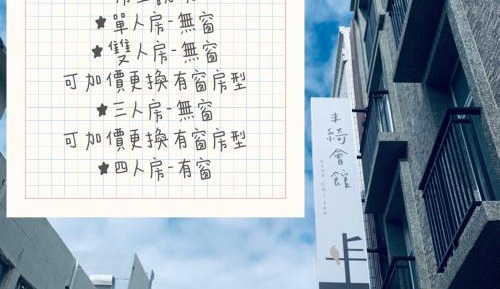 ★單人房-無窗
★雙人房-無窗
可加價更換有窗房型
★三人房-無窗
可加價更換有窗房型
★四人房-有窗
丰綺會館